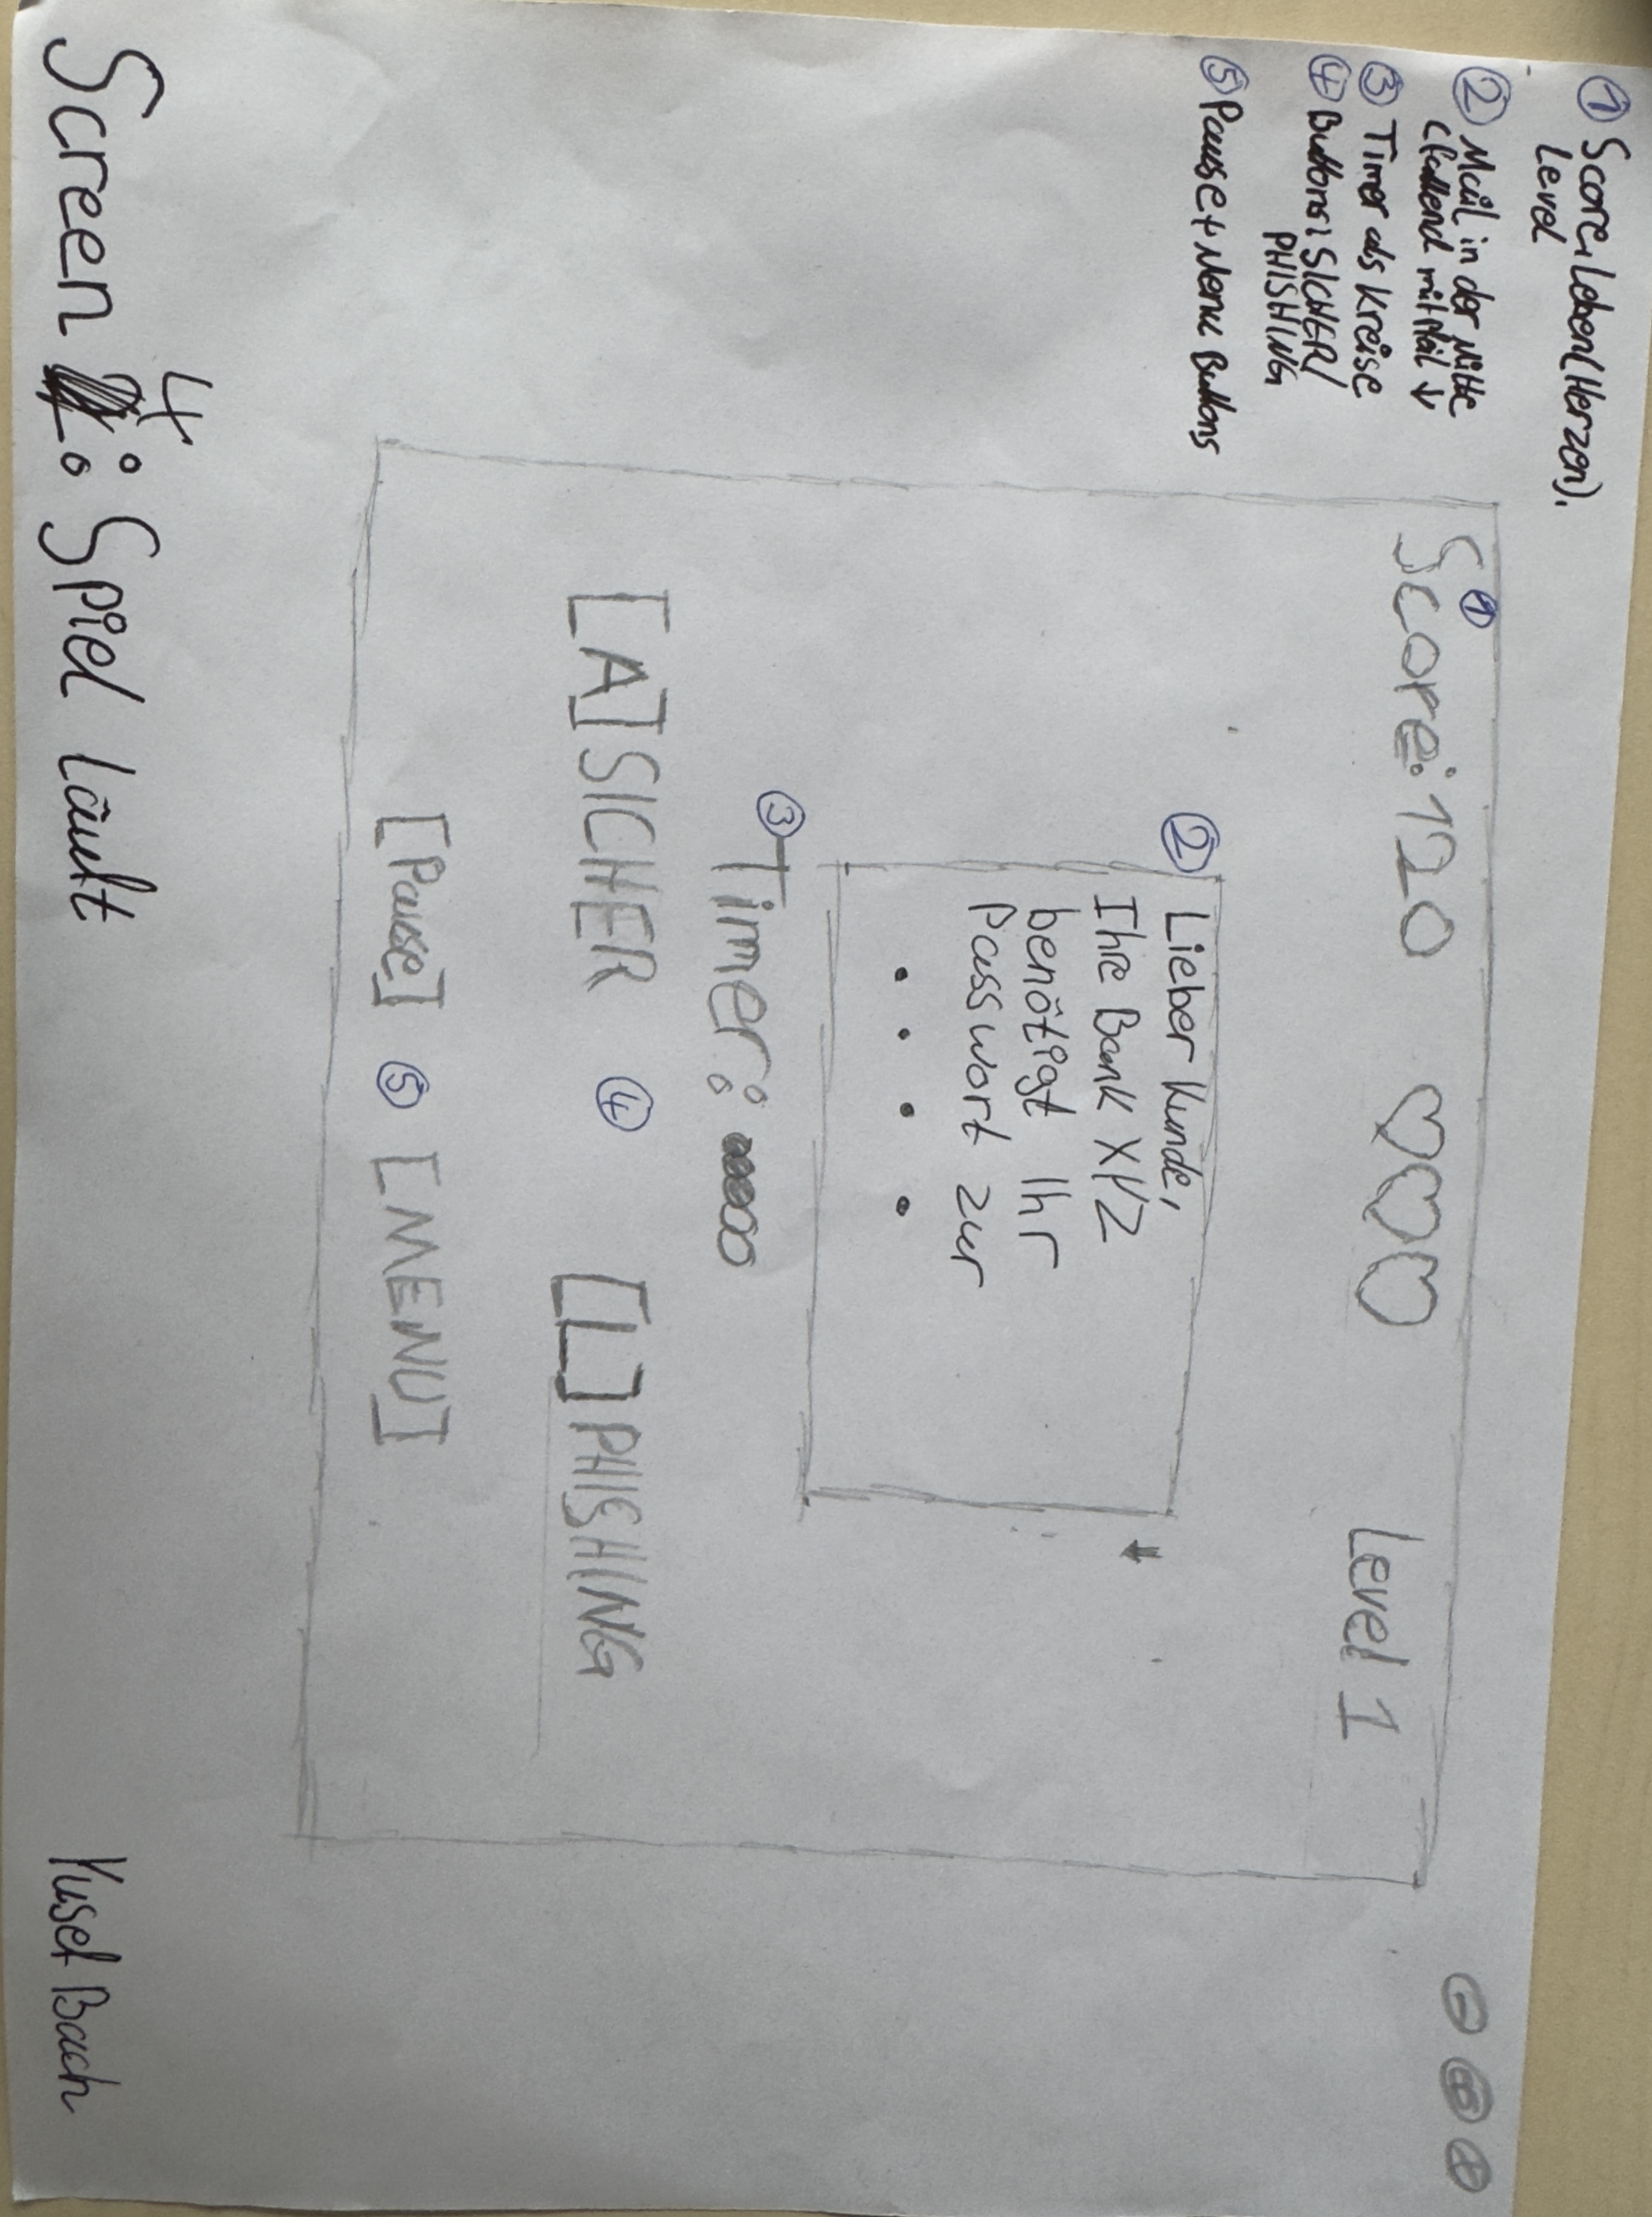 ① Score, Leben (Herzen),
Level
② Mail in der Mitte
(fallend mit Pfeil ↓
③ Timer als Kreise
④ Buttons: SICHER/
PHISHING
⑤ Pause + Menu Buttons
①
Score: 120 ♡♡♡ Level 1
②
Lieber Kunde,
Ihre Bank XYZ
benötigt Ihr
Passwort zur
• • • •
③ Timer:
[A] SICHER ④ [L] PHISHING
[Pause] ⑤ [MENU]
Screen 4: Spiel läuft
Yusef Bach